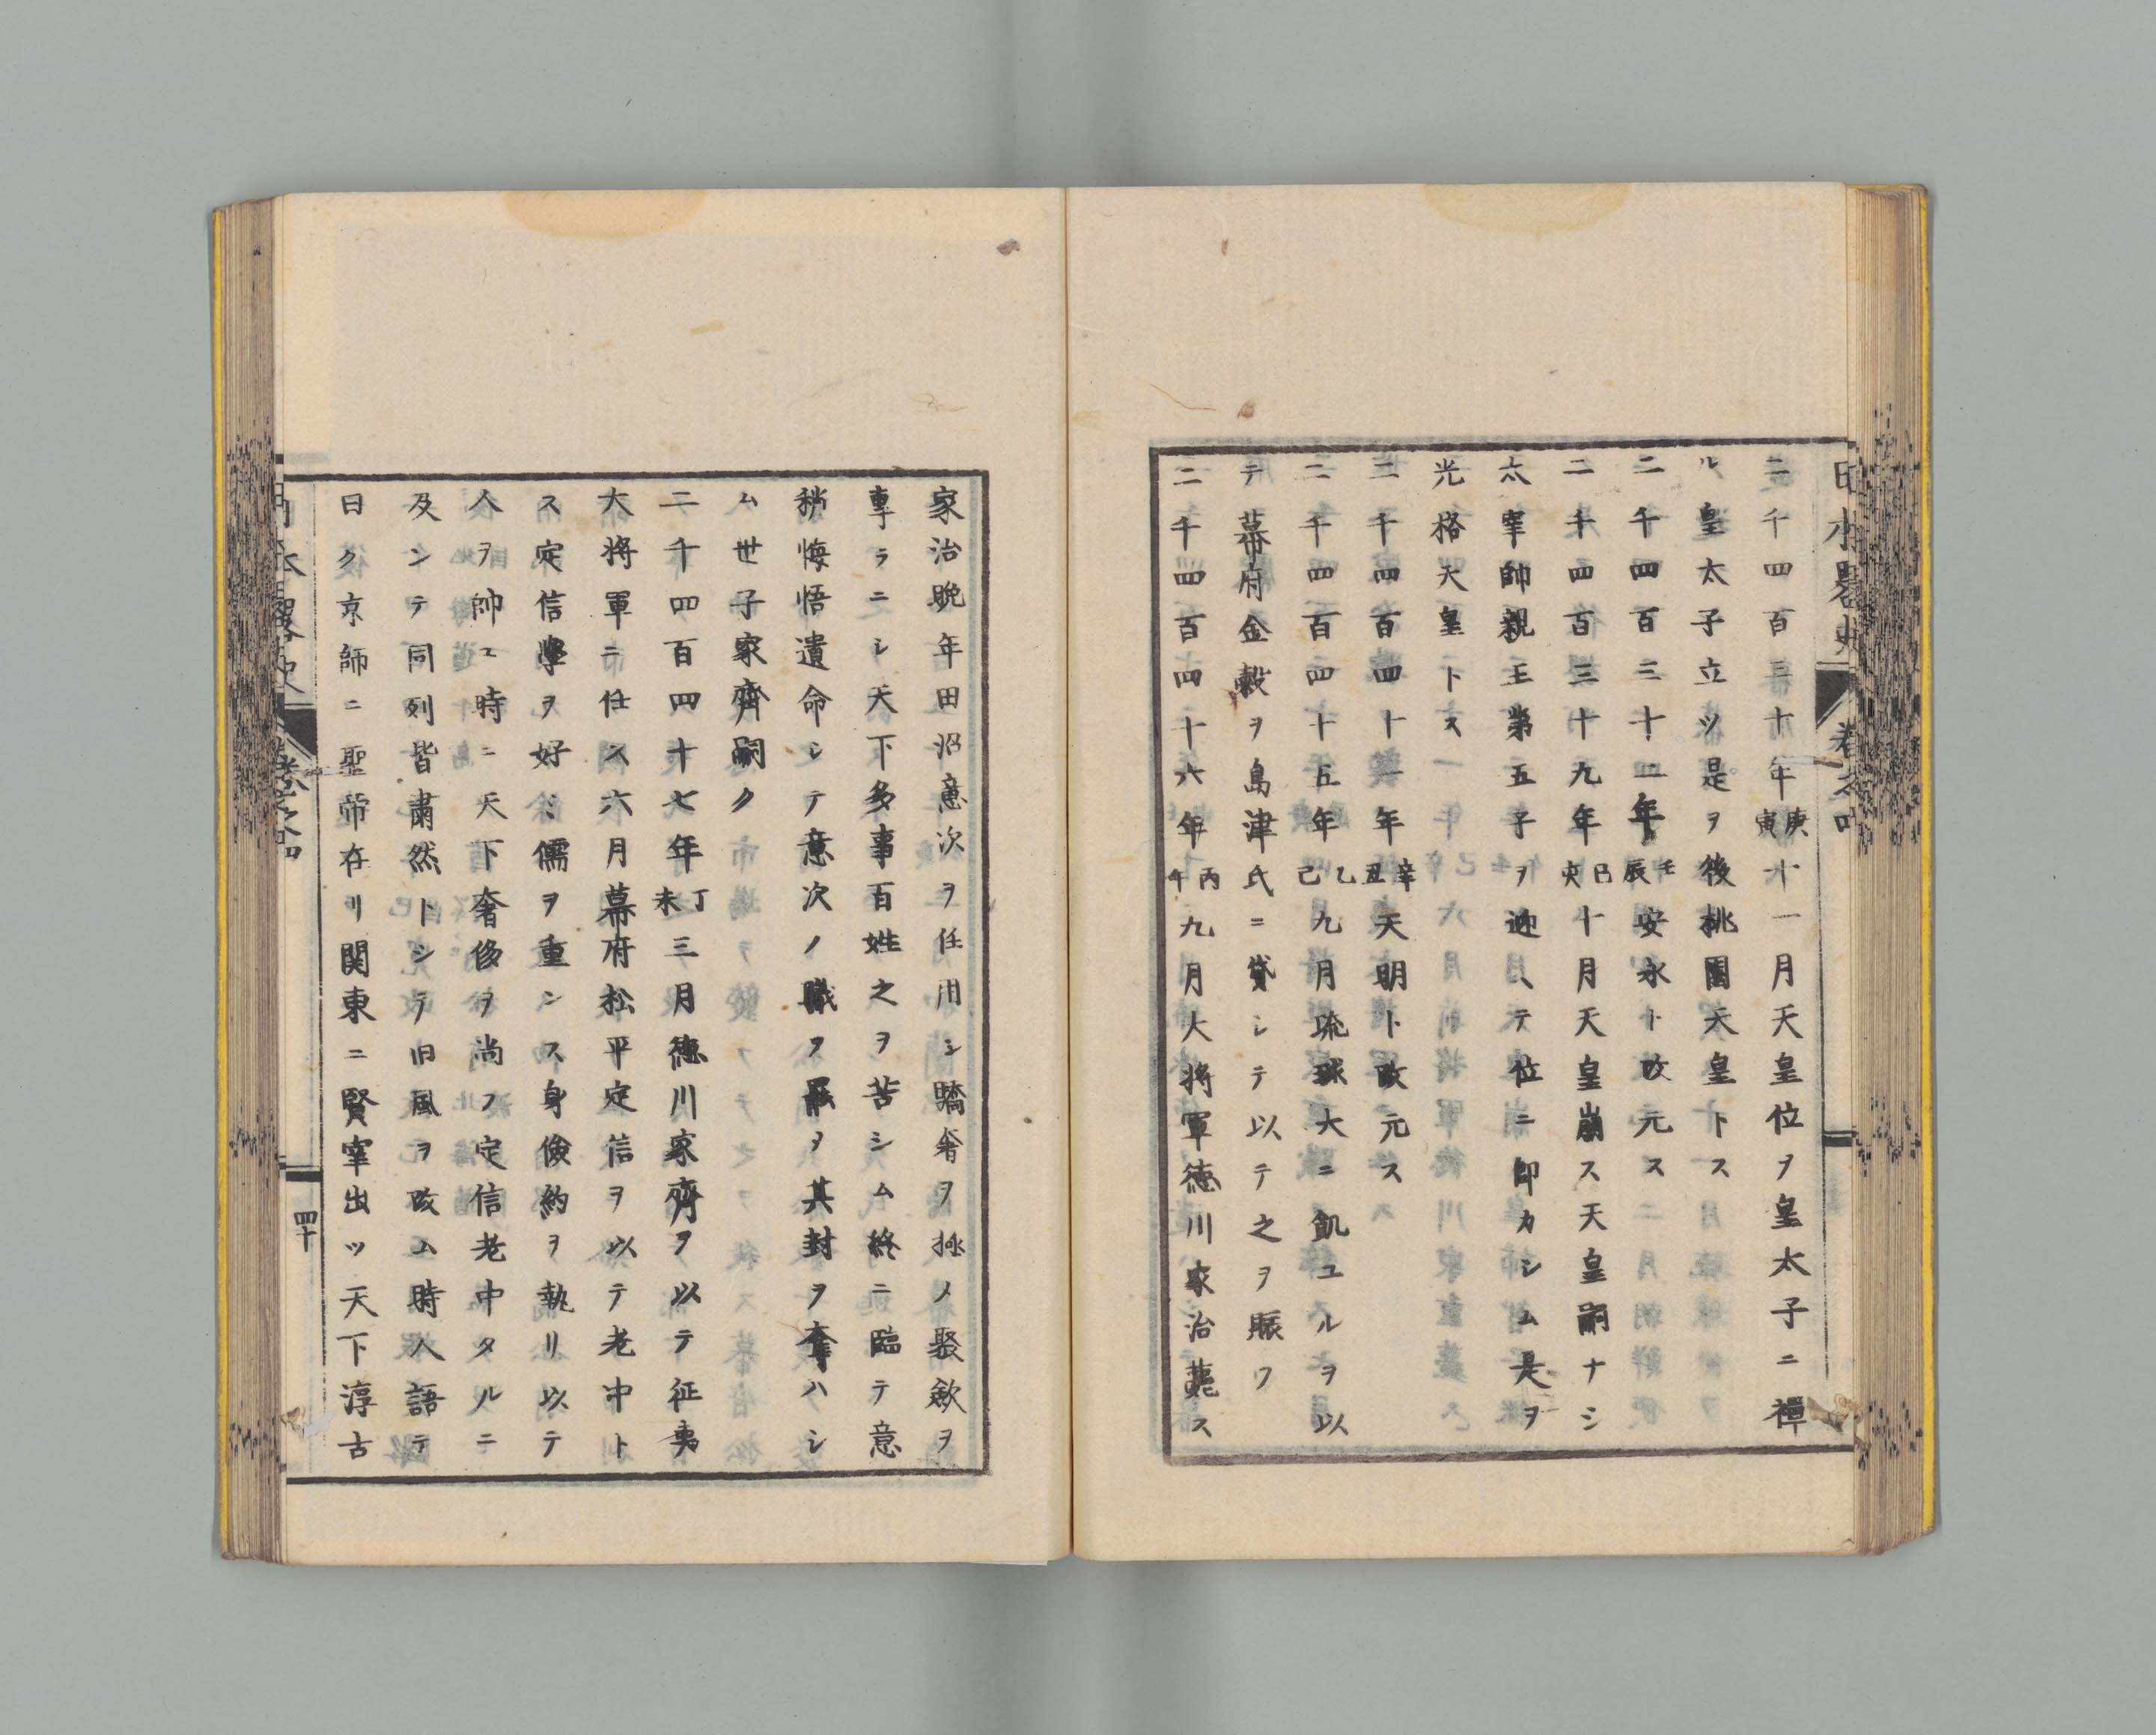 二千四百三十年庚寅十一月天皇位ヲ皇太子ニ禪
ル皇太子立ツ是ヲ後桃園天皇トス
二千四百三十二年壬辰安永ト改元ス
二千四百三十九年己亥十月天皇崩ス天皇嗣ナシ
太宰帥親王第五子ヲ迎ヘテ位ニ即カシム是ヲ
光格天皇トス
二千四百四十一年辛丑天明ト改元ス
二千四百四十五年乙巳九月琉球大ニ飢ユルヲ以
テ幕府金穀ヲ島津氏ニ貸シテ以テ之ヲ賑フ
二千四百四十六年丙午九月大将軍徳川家治薨ス
家治晩年田沼意次ヲ任用シ驕奢ヲ極メ聚斂ヲ
專ラニシ天下多事百姓之ヲ苦シム終ニ臨テ意
稍悔悟遺命シテ意次ノ職ヲ罷メ其封ヲ奪ハシ
ム世子家齊嗣ク
二千四百四十七年丁未三月徳川家齊ヲ以テ征夷
大将軍ニ任ス六月幕府松平定信ヲ以テ老中ト
ス定信學ヲ好ミ儒ヲ重ンス身儉約ヲ執リ以テ
人ヲ帥ユ時ニ天下奢侈ヲ尚フ定信老中タルニ
及ンテ同列皆肅然トシテ旧風ヲ改ム時人語テ
曰ク京師ニ聖帝在リ関東ニ賢宰出ツ天下淳古
四十